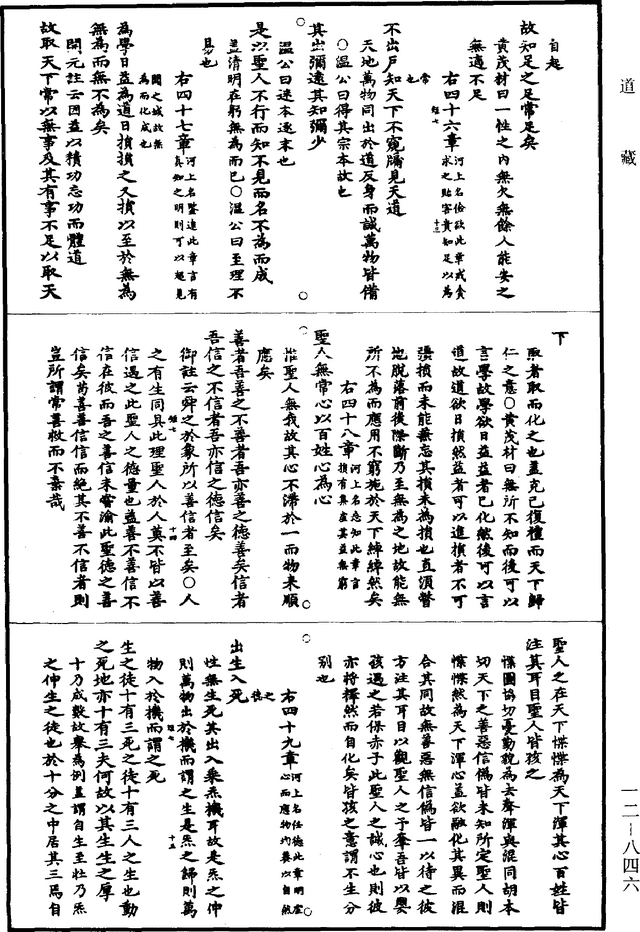 道藏
自起
故知足之足常足矣
黄茂材曰一性之內無欠無餘人能安之
無適不足
右四十六章河上名儉欲此章戒貪求之貽害貴知足以為常也
不出戶知天下不窺牖見天道
天地萬物同出於道反身而誠萬物皆備
○温公曰得其宗本故也
其出彌遠其知彌少
温公曰迷本逐末也
是以聖人不行而知不見而名不為而成
盖清明在躬無為而已○温公曰至理不
易也
右四十七章河上名鑒遠此章言有真知之明則可以超見聞之域故無為而化成也
為學日益為道日損損之又損以至於無為
無為而無不為矣
開元註云因益以積功忘功而體道
故取天下常以無事及其有事不足以取天
下
取者取而化之也盖克己復禮而天下歸
仁之意○黄茂材曰無所不知而後可以
言學故學欲日益益者已化然後可以言
道故道欲日損然益者可以進損者不可
彊損而未能無忘其損未為損也直須瞥
地脱落前後際斷乃至無為之地故能無
所不為而應用不窮施於天下綽綽然矣
右四十八章河上名忘知此章言損有集虛其益無窮
聖人無常心以百姓心為心
惟聖人無我故其心不滞於一而物来順
應矣
善者吾善之不善者吾亦善之德善矣信者
吾信之不信者吾亦信之德信矣
御註云舜之於象所以善信者至矣○人
之有生同具此理聖人於人莫不皆以善
信遇之此聖人之德量也盖善不善信不
信在彼而吾之善信未嘗渝此聖德之善
信矣苟善善信信而絶其不善不信者則
豈所謂常善救而不棄哉
聖人之在天下惵惵為天下渾其心百姓皆
注其耳目聖人皆孩之
惵圖協切憂勤貌為去聲渾與混同胡本
切天下之善惡信偽皆未知所定聖人則
惵惵然為天下渾心盖欲融化其異而混
合其同故無善惡無信偽皆一以待之彼
方注其耳目以觀聖人之予奪吾皆以嬰
孩遇之若保赤子此聖人之誠心也則彼
亦將釋然而自化矣皆孩之意謂不生分
别也
右四十九章河上名任德此章明虛心而應物均美以自然之德
出生入死
性無生死其出入乘炁機耳故是炁之伸
則萬物出於機而謂之生是炁之歸則萬
物入於機而謂之死
生之徒十有三死之徒十有三人之生也動
之死地亦十有三夫何故以其生生之厚
十乃成數故舉為例盖謂自生至壮乃炁
之伸生之徒也於十分之中居其三焉自
一二-八四六